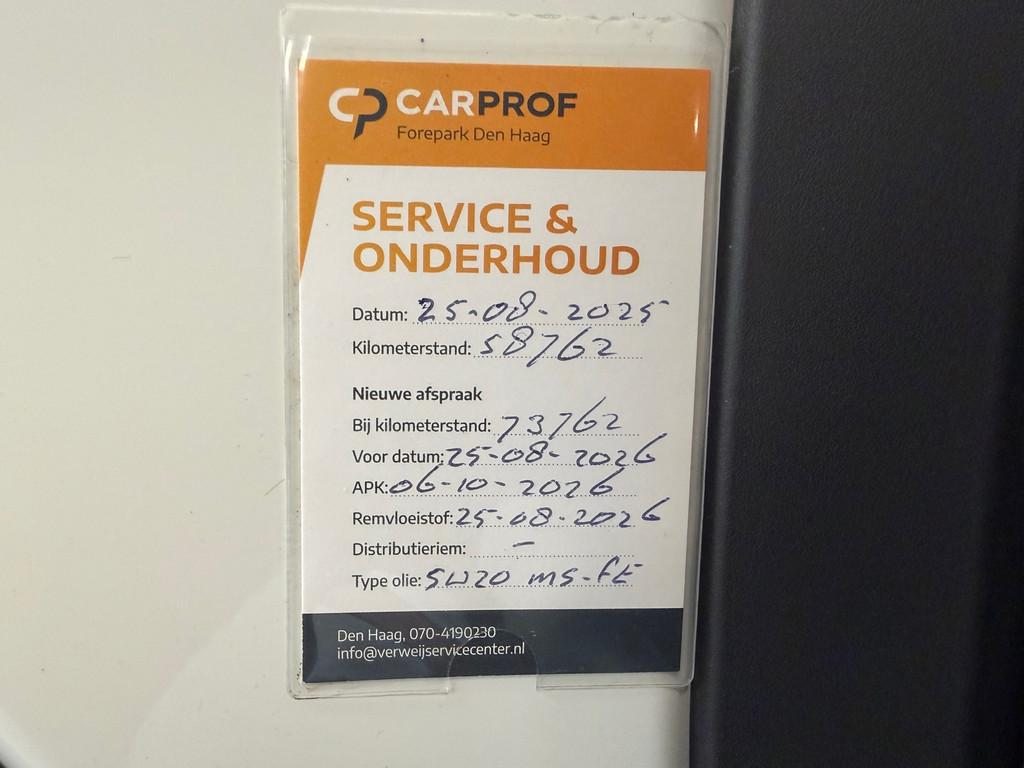 CP CARPROF
Forepark Den Haag
SERVICE &
ONDERHOUD
Datum: 25-08-2025
Kilometerstand: 58762
Nieuwe afspraak
Bij kilometerstand: 73762
Voor datum: 25-08-2026
APK: 06-10-2026
Remvloeistof: 25-08-2026
Distributieriem: -
Type olie: 5W20 ms-FE
Den Haag, 070-4190230
info@verweijservicecenter.nl